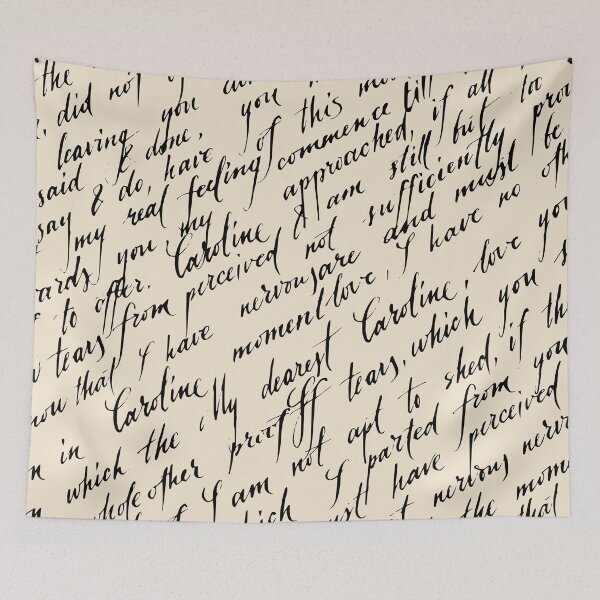 the
did not
leaving you
said & done, you
say & do, have of this
my real feeling commence till
ards you, my approached, if all too
to offer. Caroline & am still but
tears from perceived not sufficiently
now that I have nervous are and must be
in Caroline moment love, I have no oth
which the My dearest Caroline, love you
whole other proof tears, which you s
I am not apt to shed, if th
I parted from you
have perceived
nervous nerv
the mome
that